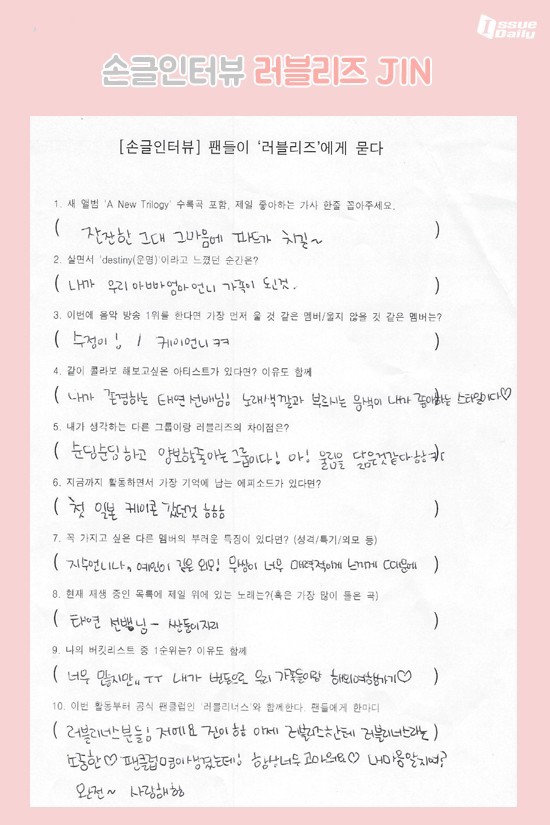 Issue
Daily
손글인터뷰 러블리즈 JIN
[손글인터뷰] 팬들이 '러블리즈'에게 묻다
1. 새 앨범 'A New Trilogy' 수록곡 포함, 제일 좋아하는 가사 한줄 꼽아주세요.
( 잔잔한 그대 그마음에 파도가 치길~ )
2. 살면서 'destiny(운명)'이라고 느꼈던 순간은?
( 내가 우리 아빠엄마언니 가족이 된것. )
3. 이번에 음악 방송 1위를 한다면 가장 먼저 울 것 같은 멤버/울지 않을 것 같은 멤버는?
( 수정이! / 케이언니ㅋㅋ )
4. 같이 콜라보 해보고싶은 아티스트가 있다면? 이유도 함께
( 내가 존경하는 태연선배님! 노래색깔과 부르시는 음색이 내가 좋아하는 스타일이다♡ )
5. 내가 생각하는 다른 그룹이랑 러블리즈의 차이점은?
( 순딩순딩하고 양보할줄아는 그룹이다! 아! 울림을 닮은것같다
6. 지금까지 활동하면서 가장 기억에 남는 에피소드가 있다면?
( 첫 일본 케이콘 갔던것 하하하 )
7. 꼭 가지고 싶은 다른 멤버의 부러운 특징이 있다면? (성격/특기/외모 등)
( 지수언니나, 예인이 같은 외모! 무쌍이 너무 매력적이게 느끼게 때문에 )
8. 현재 재생 중인 목록에 제일 위에 있는 노래는?(혹은 가장 많이 들은 곡)
( 태연 선배님 - 쌍둥이자리 )
9. 나의 버킷리스트 중 1순위는? 이유도 함께
( 너무 많지만,, ㅜㅜ 내가 번돈으로 우리 가족들이랑 해외여행가기♡ )
10. 이번 활동부터 공식 팬클럽인 '러블리너스'와 함께한다. 팬들에게 한마디
( 러블리너스분들! 저예요 진이 히히 이제 러블리즈한테 러블리너스라는 )
소중한♡ 팬클럽명이생겼는데! 항상너무고마워요♡ 내마음알지여?
완전~ 사랑해히